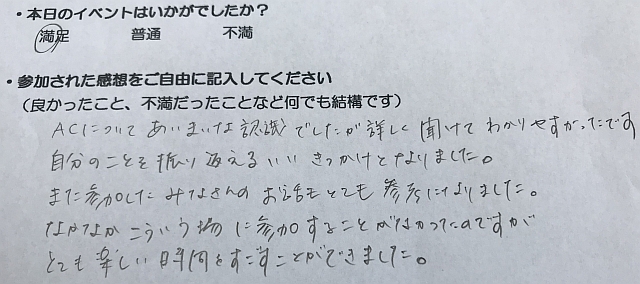 ・本日のイベントはいかがでしたか？
満足　普通　不満
・参加された感想をご自由に記入してください
（良かったこと、不満だったことなど何でも結構です）
ACについてあいまいな認識でしたが詳しく聞けてわかりやすかったです
自分のことを振り返えるいいきっかけとなりました。
また参加したみなさんのお話もとても参考になりました。
なかなかこういう場に参加することがなかったのですが
とても楽しい時間をすごすことができました。